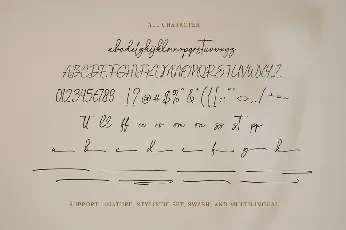 ALL CHARACTER
abcdefghijklmnopqrstuvwxyz
ABCDEFGHIJKLMNOPQRSTUVWXYZ
0123456789 !?@#$%^&*
ll ff on ss st pp
a b c d e f g h
SUPPORT LIGATURE, STYLISTIC SET, SWASH, AND MULTILINGUAL